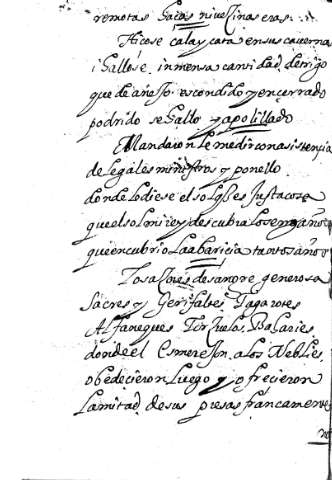 remotas Gacas ni vezinas eras.
Hiçose cala y cata en sus caverna
i Hallose inmensa cantidad de trigo
que de años so escondido y ençerrado
podrido se hallo y apolillado
Mandaron le medir con asistencia
de legales ministros y ponello
donde lo diese el sol q̃ es Justa cosa
que el sol mire y descubra los engaños
que encubrio la abaricia tantos años
Los açores de sangre generosa
Sacres y Gerifaltes Tagarotes
Alfaneques Torzuelos, Baharies
donde el Esmerejon a los Neblies
obedecieron luego y ofrecieron
la mitad de sus presas francamente